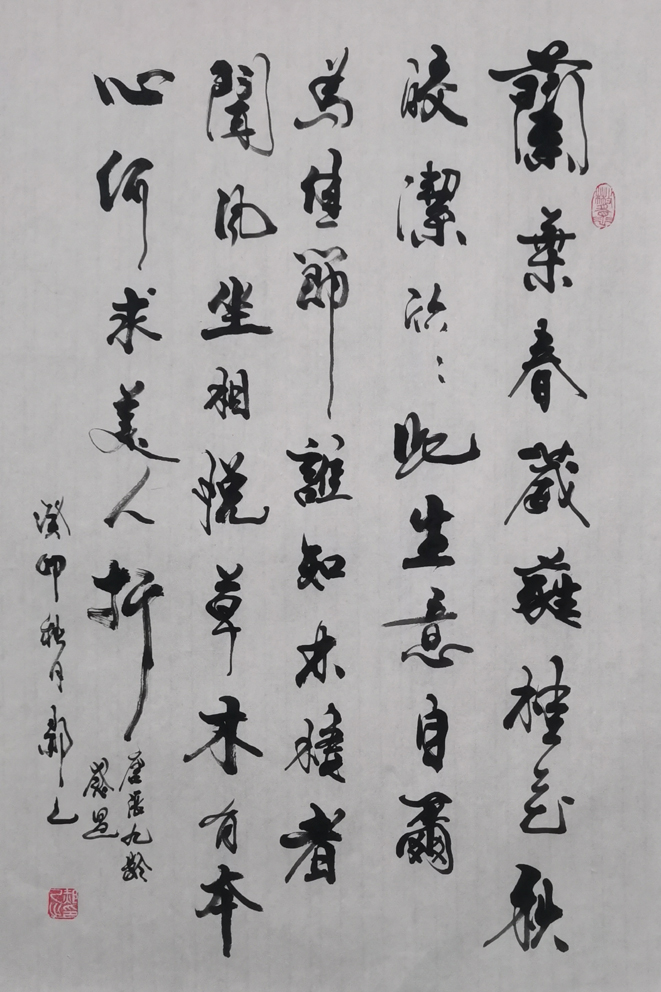 蘭葉春葳蕤桂花秋
皎潔欣〻此生意自爾
為佳節誰知林棲者
聞風坐相悅草木有本
心何求美人折
唐張九齡
感遇
癸卯秋月